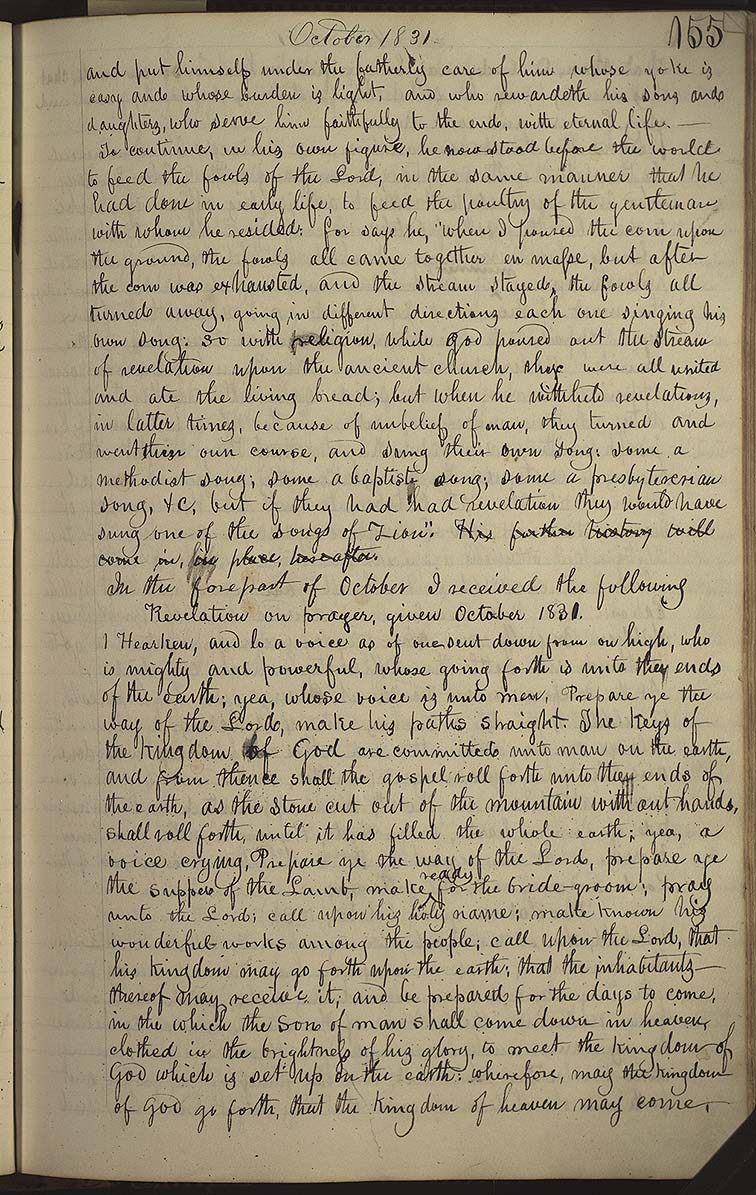 October 1831. 155
and put himself under the fatherly care of him whose yoke is
easy and whose burden is light, and who rewardeth his sons and
daughters, who serve him faithfully to the end, with eternal life. —
To continue, in his own figure, he now stood before the world
to feed the fowls of the Lord, in the same manner that he
had done in early life, to feed the poultry of the gentleman
with whom he resided: for says he, "when I poured the corn upon
the ground, the fowls all came together en masse, but after
the corn was exhausted, and the stream stayed, the fowls all
turned away, going in different directions each one singing his
own song: so with religion, while God poured out the stream
of revelation upon the ancient church, they were all united
and ate the living bread; but when he withheld revelations,
in latter times, because of unbelief of man, they turned and
went their own course, and sung their own song: some a
methodist song; some a baptist song; some a presbyterian
song, &c, but if they had had revelation they would have
sung one of the songs of "Zion". His further history will
come in, its place, hereafter.
In the forepart of October I received the following
Revelation on prayer, given October 1831.
1 Hearken, and lo a voice as of one sent down from on high, who
is mighty and powerful, whose going forth is unto the ends
of the earth; yea, whose voice is unto men, Prepare ye the
way of the Lord, make his paths straight. The keys of
the kingdom of God are committed unto man on the earth,
and from thence shall the gospel roll forth unto the ends of
the earth, as the stone cut out of the mountain without hands,
shall roll forth, until it has filled the whole earth; yea, a
voice crying, Prepare ye the way of the Lord, prepare ye
the supper of the Lamb, make ready for the bride-groom; pray
unto the Lord; call upon his holy name; make known his
wonderful works among the people; call upon the Lord, that
his kingdom may go forth upon the earth; that the inhabitants
thereof may receive it, and be prepared for the days to come,
in the which the Son of man shall come down in heaven,
clothed in the brightness of his glory, to meet the kingdom of
God which is set up on the earth: wherefore, may the kingdom
of God go forth, that the kingdom of heaven may come,